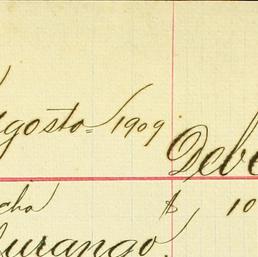 agosto = 1909
Debe
cho $ 10
Durango.